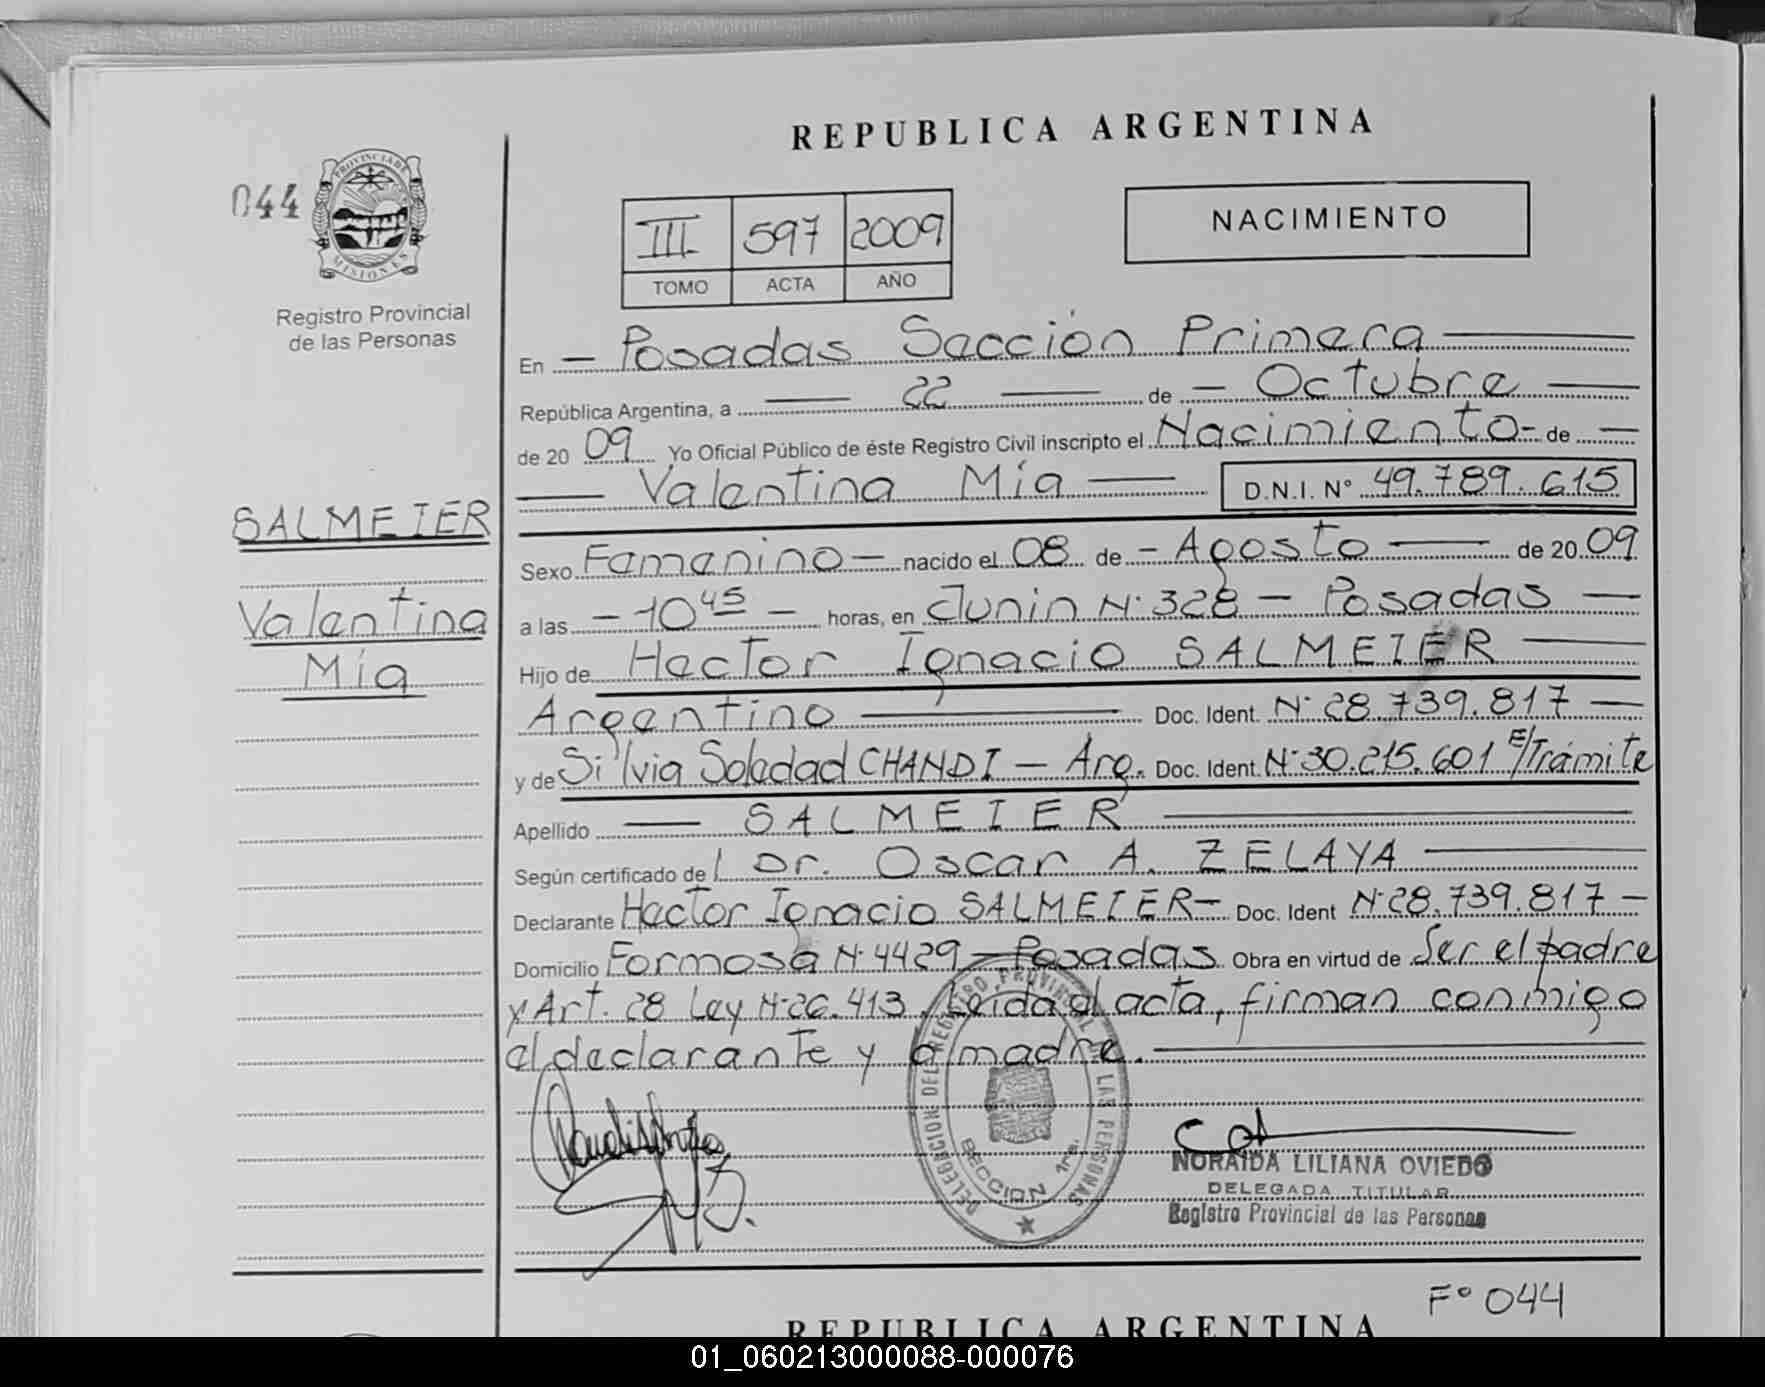 REPUBLICA ARGENTINA
044
PROVINCIA DE
MISIONES
Registro Provincial
de las Personas
III 597 2009
TOMO ACTA AÑO
NACIMIENTO
En — Posadas Sección Primera —
República Argentina, a — 22 — de — Octubre —
de 20 09 Yo Oficial Público de éste Registro Civil inscripto el Nacimiento - de —
— Valentina Mía — D.N.I. N° 49.789.615
SALMEIER
Valentina
Mía
Sexo Femenino — nacido el 08 de — Agosto — de 20 09
a las — 10 45 — horas, en Junin N° 328 — Posadas —
Hijo de Hector Ignacio SALMEIER —
Argentino — Doc. Ident. N° 28.739.817 —
y de Silvia Soledad CHANDI — Arg. Doc. Ident. N° 30.215.601 E/Trámite
Apellido — SALMEIER —
Según certificado de l Dr. Oscar A. ZELAYA —
Declarante Hector Ignacio SALMEIER — Doc. Ident N° 28.739.817 —
Domicilio Formosa N° 4429 — Posadas Obra en virtud de Ser el padre
y Art. 28 Ley N° 26.413. Leida el acta, firman conmigo
el declarante y la madre. —
DELEGACION DEL REGISTRO PROVINCIAL DE LAS PERSONAS
SECCION 1ra.
NORAIDA LILIANA OVIEDO
DELEGADA TITULAR
Registro Provincial de las Personas
F° 044
REPUBLICA ARGENTINA
01_060213000088-000076